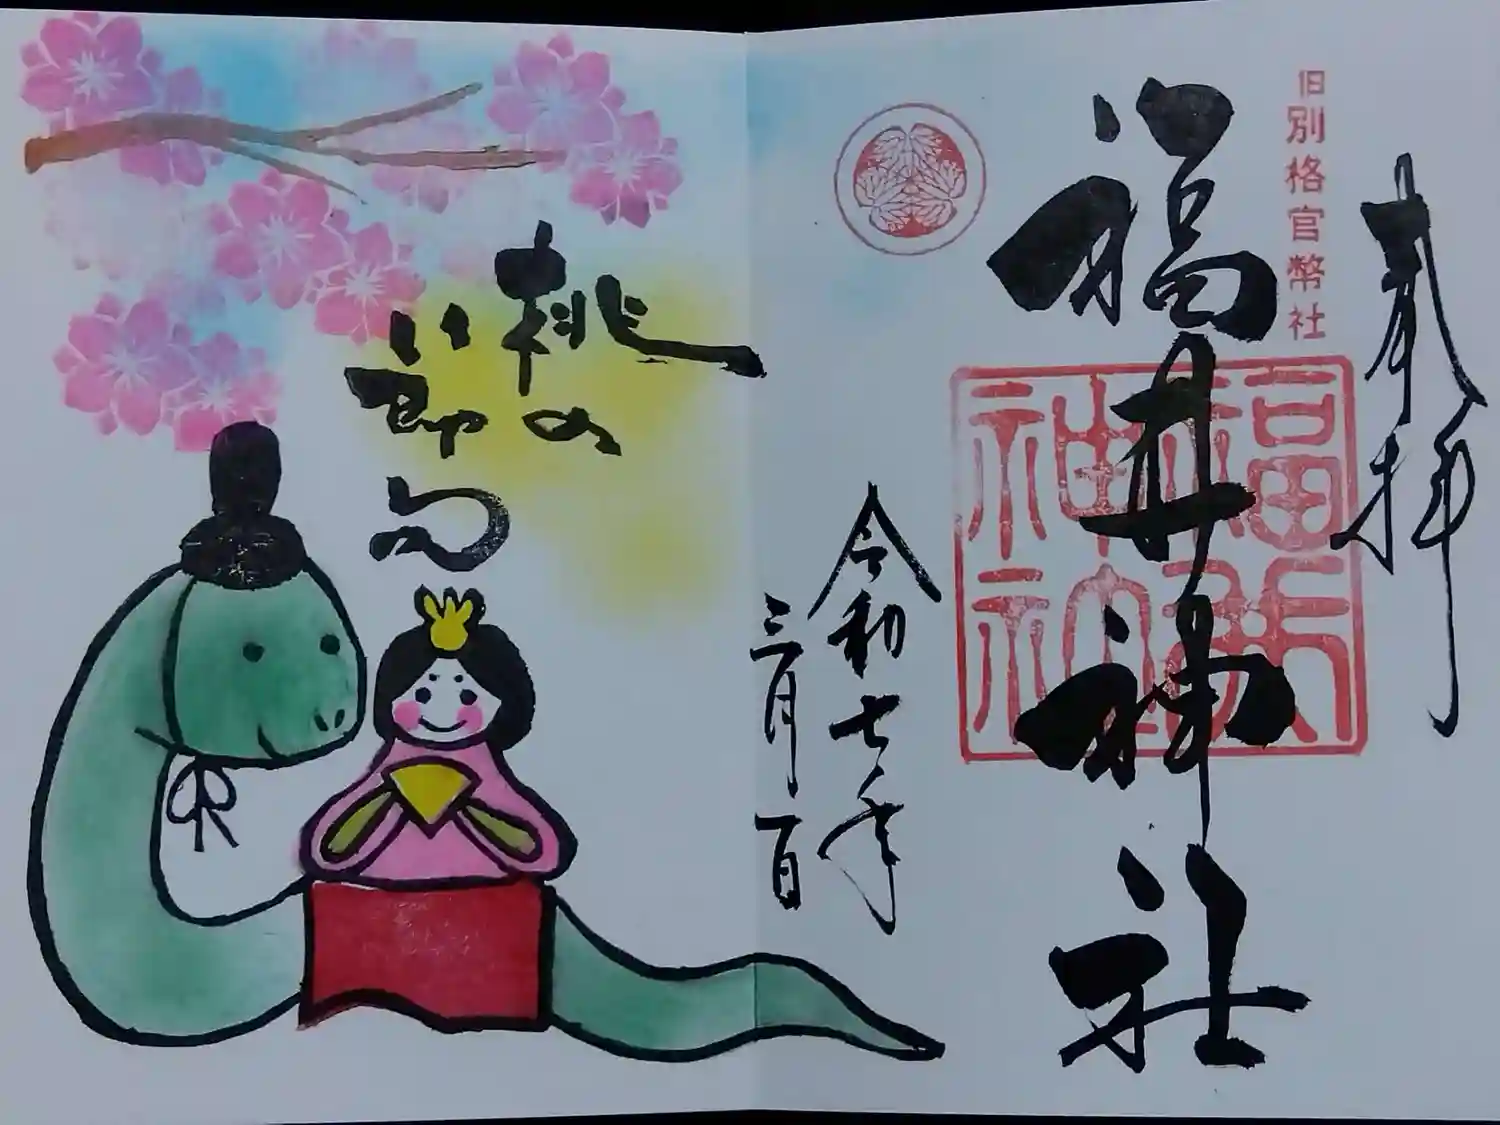 奉拝
旧別格官幣社
福井神社
福井神社
令和七年
三月一日
桃の
節句